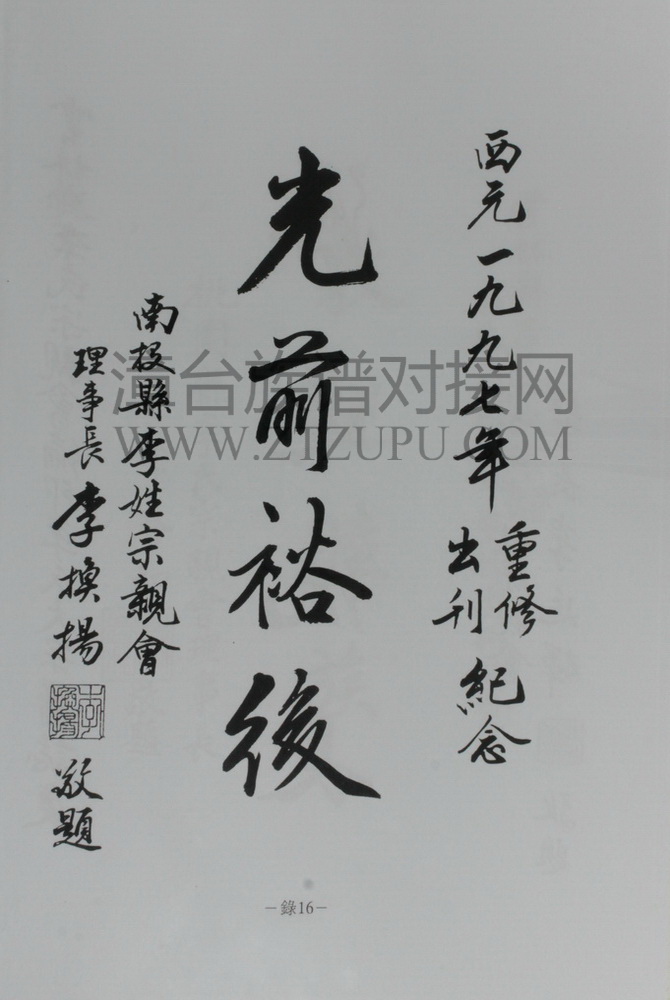 西元一九九七年重修出刊紀念
光前裕後
南投縣李姓宗親會
理事長李換揚敬題
漳台族谱对接网
WWW.ZTZUPU.COM
－錄16－